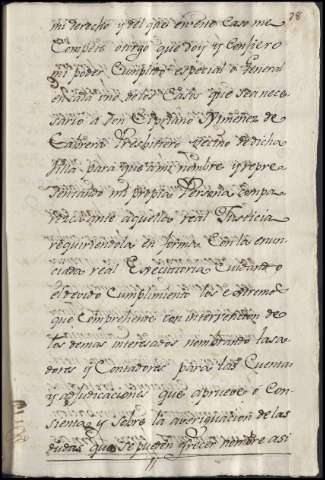 78
mi derecho y del que en este Caso me
Compete otorgo que doy y Confiero
mi poder Cumplido especial o General
en cada uno de los Casos que sea nece
sario a Don Cipriano Ximenez de
Cabrera Presbitero Vecino de dicha
Villa para que a mi nombre y repre
sentando mi propia Persona compa
resca ante aquella real Justicia
requiriendola en forma Con la enun
ciada real Executoria Cuidando
el devido Cumplimiento los extremos
que Comprehende con intervencion de
los demas interesados nombrando tasa
dores y Contadores para las Cuentas
y adjudicaciones que apruebe o Con
sienta y Sobre la averiguacion de las
dudas que se pueden ofrecer nombre asi